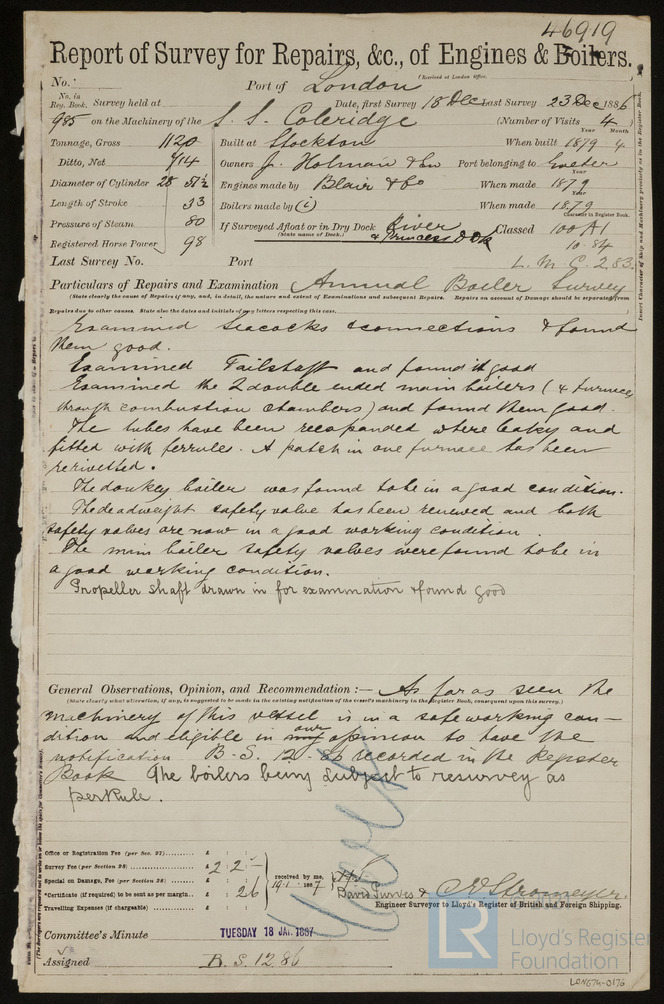 46919
Report of Survey for Repairs, &c., of Engines & Boilers.
(Received at London Office
No. Port of London
No. in Reg. Book. Survey held at Date, first Survey 18 Dec Last Survey 23 Dec 1886
985 on the Machinery of the S.S. Coleridge (Number of Visits 4)
Year Month
Tonnage, Gross 1120 Built at Stockton When built 1879 4
Ditto, Net 714 Owners J. Holman & Sons Port belonging to Exeter
Year
Diameter of Cylinder 28 51½ Engines made by Blair & Co When made 1879
Year
Length of Stroke 33 Boilers made by (i) When made 1879
Character in Register Book.
Pressure of Steam 80 If Surveyed Afloat or in Dry Dock River Classed 100 A1
(State name of Dock.) & Princess Dok
Registered Horse Power 98 10.84
Last Survey No. Port L.M.C. 2,83.
Particulars of Repairs and Examination Annual Boiler Survey
(State clearly the cause of Repairs if any, and, in detail, the nature and extent of Examinations and subsequent Repairs. Repairs on account of Damage should be separated from
Repairs due to other causes. State also the dates and initials of any letters respecting this case.
Examined seacocks & connections & found
them good.
Examined Tailshaft and found it good
Examined the 2 double ended main boilers (& furnaces
through combustion chambers) and found them good.
The tubes have been reexpanded where leaky and
fitted with ferrules. A patch in one furnace has been
rerivetted.
The donkey boiler was found to be in a good condition.
The deadweight safety valve has been renewed and both
safety valves are now in a good working condition.
The main boiler safety valves were found to be in
a good working condition.
Propeller shaft drawn in for examination & found good
General Observations, Opinion, and Recommendation :— As far as seen the
(State clearly what alteration, if any, is suggested to be made in the existing notification of the vessel's machinery in the Register Book, consequent upon this survey.)
machinery of this vessel is in a safe working con-
dition and eligible in my our opinion to have the
notification B.S. 12.86 recorded in the Register
Book The boilers being subject to resurvey as
per Rule.
Office or Registration Fee (per Sec. 27) £ : :
Survey Fee (per Section 28) £ 2 : 2 : -
Special on Damage, Fee (per Section 28) £ : :
*Certificate (if required) to be sent as per margin £ : 2 6
Travelling Expenses (if chargeable) £ : :
received by me,
19.1.1887
David Purves & C.E. Stromeyer.
Engineer Surveyor to Lloyd's Register of British and Foreign Shipping.
Committee's Minute TUESDAY 18 JAN. 1887
Assigned B.S. 12.86
LR Lloyd's Register
Foundation
LON674-0176
Insert Character of Ship and Machinery precisely as in the Register Book.